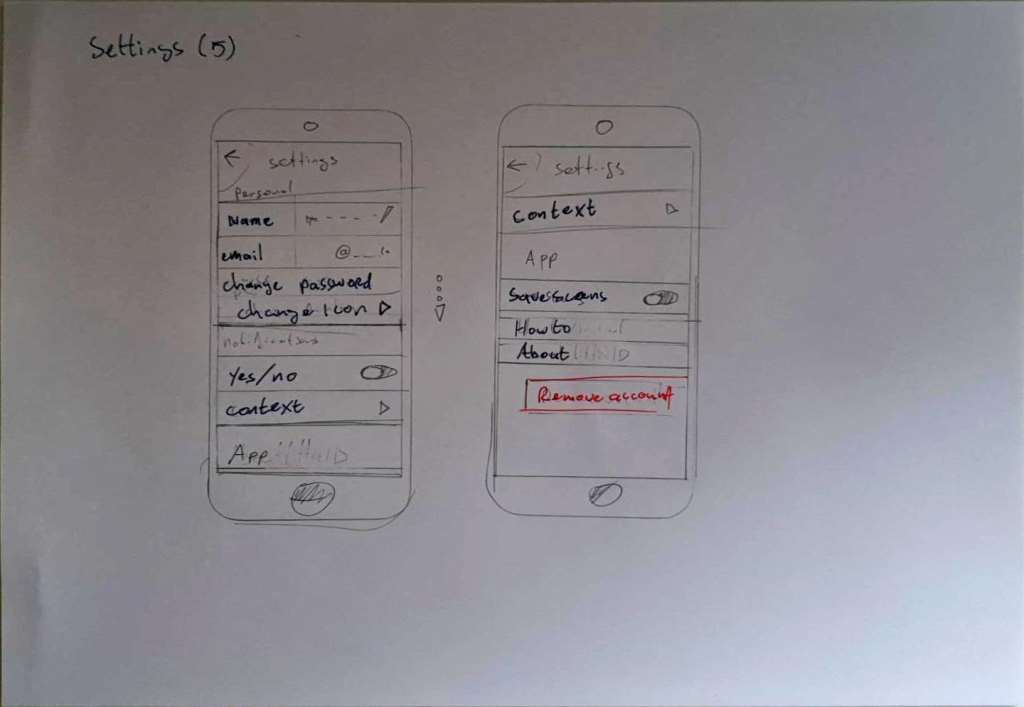 Settings (5)
settings
Personal
Name
email @
change password
change icon
notifications
Yes/no
context
App
settings
context
App
Save scans
How to
About
Remove account